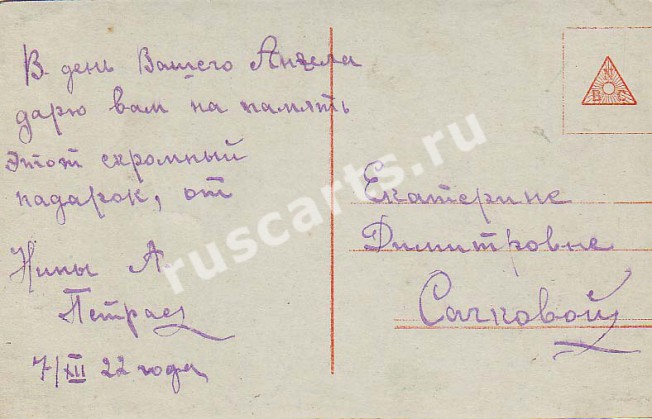 В день Вашего Ангела
дарю вам на память
этот скромный
падарок, от
Нины А
Петрас
7/XII 22 года
N
B C
Екатерине
Димитровне
Сачковой
ruscarts.ru